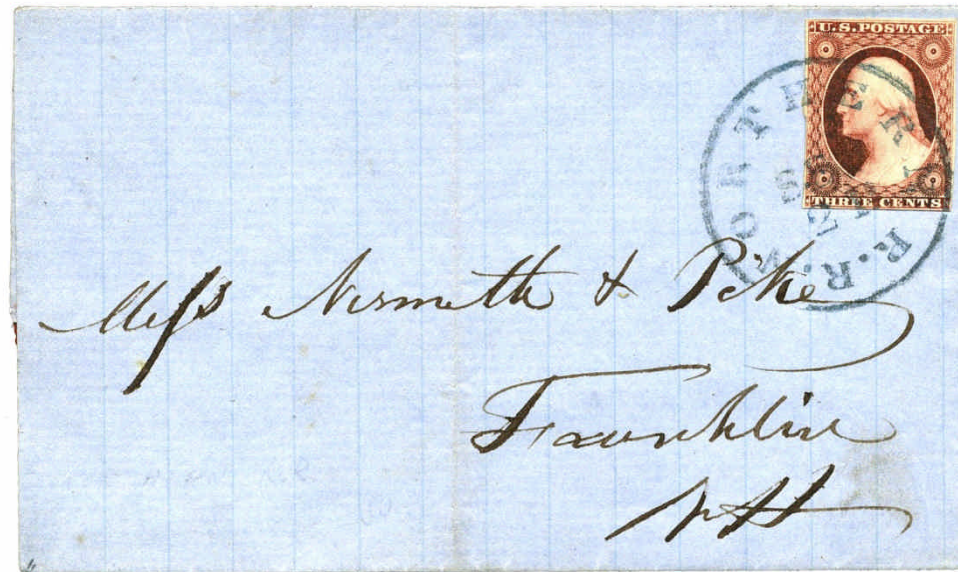 U.S. POSTAGE
THREE CENTS
NORTHERN R.R.
Mess Nesmith & Pike
Franklin
NH